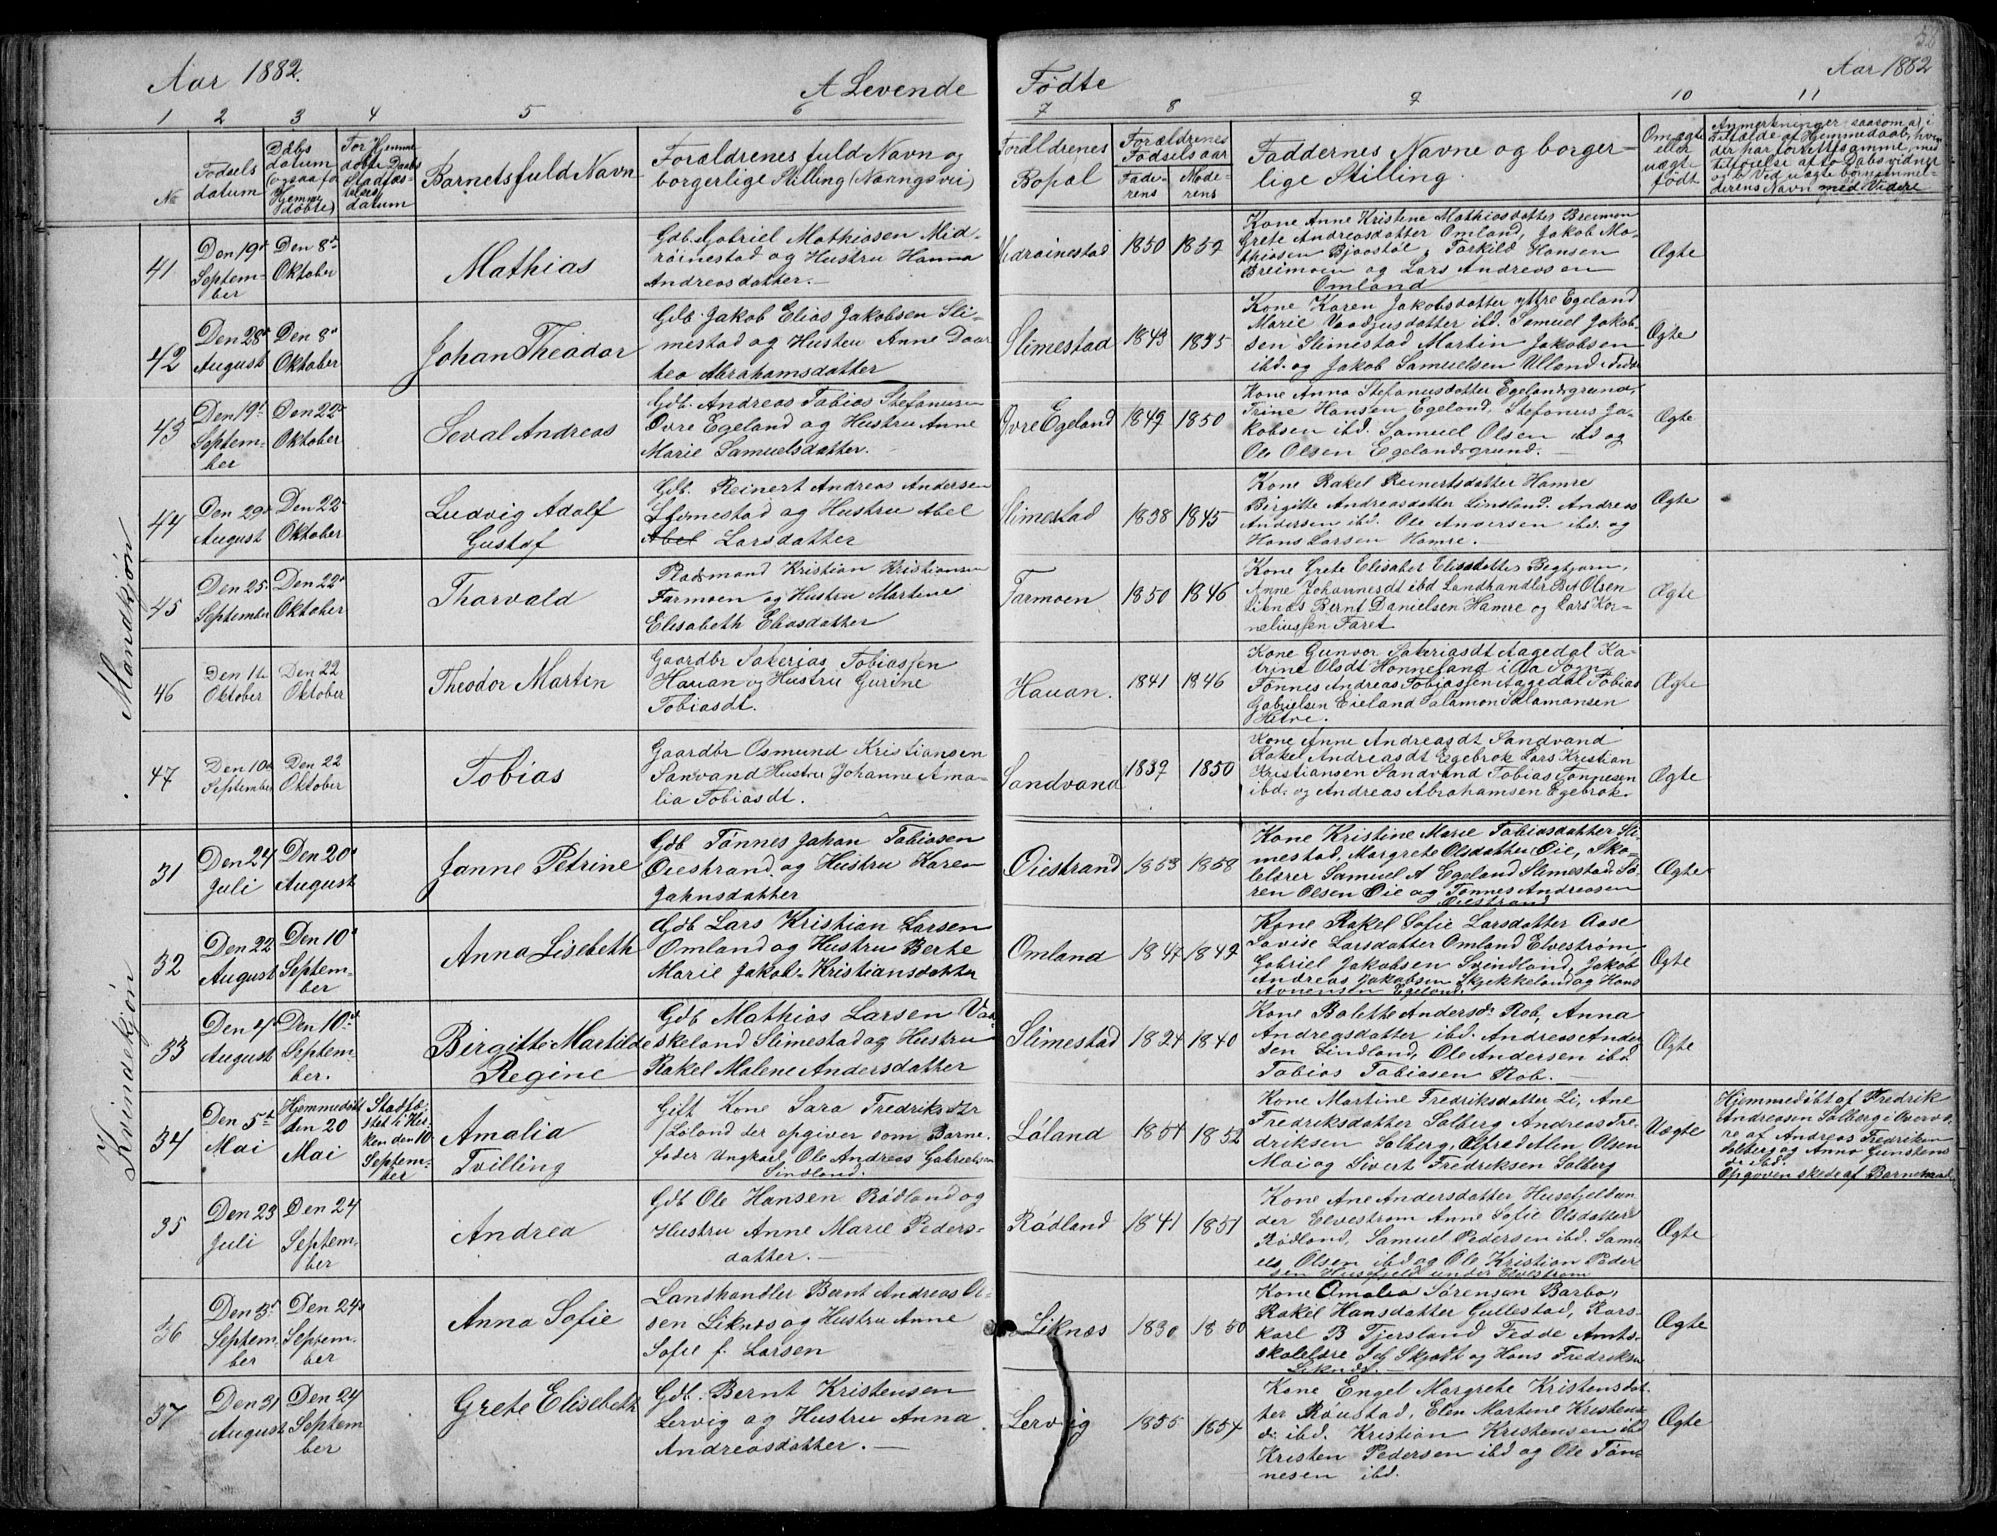 Aar 1882.
A Levende
Fødte
Aar 1882
1 2 3 4 5 6 7 8 9 10 11
No
Fødsels
datum
Daabs
datum
(ogsaa for
Hjemme
døbte)
For Hjemme
døbte Daabs
Stadfæs
telses
datum
Barnets fuld Navn
Forældrenes fuld Navn og
borgerlige Stilling (Næringsvei)
Forældrenes
Bopæl
Forældrenes
Fødselsaar
Fade-
rens
Mode-
rens
Faddernes Navne og borger-
lige Stilling.
Om ægte
eller
uægte
født
Anmerkninger saasom at i
Tilfælde af Hjemmedaab, hvem
der har forrettet samme, med
Tilføielse af to Dabsvidner
med Videre
Mandkjøn
41
Den 19de
Septem-
ber
Den 8de
Oktober
Mathias
Gdb. Gabriel Mathiasen Mid-
røinestad og Hustru Hanna
Andreasdatter.
Midrøinestad
1850 1859
Kone Anne Kristene Mathiasdatter Breimoen
Grete Andreasdatter Omland, Jakob Ma-
thiasen Bjoestøl, Torkild Hansen
Breimoen og Lars Andreasen
Omland
Ægte
42
Den 28de
August
Den 8de
Oktober
Johan Theodor
Gdb. Jakob Elias Jakobsen Sli-
mestad og Hustru Anne Doar
tea Abrahamsdatter
Slimestad
1843 1845
Kone Karen Jakobsdatter yttre Egeland
Marie datter ibd. Samuel Jakob
sen Slimestad Martin Jakobsen
ibd. og Jakob Samuelsen Ulland
Ægte
43
Den 19de
Septem-
ber
Den 22de
Oktober
Seval Andreas
Gdb. Andreas Tobias Stefanusen
Øvre Egeland og Hustru Anne
Marie Samuelsdatter.
Øvre Egeland
1849 1850
Kone Anna Stefanusdatter Egelandsgrund,
Trine Hansen Egeland, Stefanus Ja-
kobsen ibd. Samuel Olsen ibd og
Ole Olsen Egelandsgrund.
Ægte
44
Den 29de
August
Den 22de
Oktober
Ludvig Adolf
Gustaf
Gdb. Reinert Andreas Andersen
Slimestad og Hustru Abel
Abel Larsdatter
Slimestad
1838 1845
Kone Rakel Reinertsdatter Hamre
Birgitte Andreasdatter Lindland. Andreas
Andersen ibd. Ole Andersen ibd. og
Hans Larsen Hamre.
Ægte
45
Den 25.
September
Den 22de
Oktober
Thorvald
Pladsmand Kristian Kristiansen
Farmoen og Hustru Martine
Elisabeth Eliasdatter
Farmoen
1850 1846
Kone Grete Elisabet Eliasdatter Bergtjorn,
Anne Johannesdt ibd Landhandler B A Olsen
Liknæs Bernt Danielsen Hamre og Lars Kor-
neliussen Faret
Ægte
46
Den 1te
Oktober
Den 22
Oktober
Theodor Martin
Gaardbr Sakerias Tobiassen
Hauan og Hustru Gurine
Tobiasdt.
Hauan.
1841 1846
Kone Gunvor Sakeriasdt Aagedal Ka-
trine Olsdt Honneland i Qa Sogn
Tønnes Andreas Tobiassen Aagedal Tobias
Gabrielsen Eieland Salamon Salamonsen
Ægte
47
Den 10de
September
Den 22
Oktober
Tobias
Gaardbr Osmund Kristiansen
Sanvand Hustru Johanne Ama-
lia Tobiasdt.
Sandvand
1839 1850
Kone Anne Andreasdt Sandvand
Rakel Andreasdt Egebrok Lars Kristian
Kristiansen Sandvand Tobias Tønnesen
ibd. og Andreas Abrahamsen Egebrok.
Ægte
Kvindekjøn
31
Den 24
Juli
Den 20de
August
Janne Petrine
Gdb Tønnes Johan Tobiasen
Øiestrand og Hustru Karen
Jahnsdatter
Øiestrand
1853 1858
Kone Kristine Marie Tobiasdatter Sli-
mestad, Margrete Olsdatter Øie, Sko-
lelærer Samuel A Egeland Slimestad Sø-
ren Olsen Øie og Tønnes Andreasen
Øiestrand
Ægte
32
Den 22
August
Den 10de
Septem-
ber
Anna Lisebeth
Gdb Lars Kristian Larsen
Omland og Hustru Berte
Marie Jakob-Kristiansdatter
Omland
1847 1849
Kone Rakel Sofie Larsdatter Aase
Lovise Larsdatter Omland Elvestrøm
Gabriel Jakobsen Svindland, Jakob
Andreas Jakobsen Skjekkeland og Hans
Egeland.
Ægte
33
Den 4de
August
Den 10de
Septem-
ber.
Birgitte Martilde
Regine
Gdb Mathias Larsen Vat-
skeland Slimestad og Hustru
Rakel Malene Andersdatter
Slimestad
1824 1840
Kone Bolette Andersd. Rob, Anna
Andreasdatter ibd. Andreas Ander
sen Lindland, Ole Andersen ibd.
Tobias Tobiasen Rob.
Ægte
34
Den 5te
Mai
Hjemmedøbt
den 20
Mai
Stadfæ-
stet i Kir-
ken den 10
Septem-
ber
Amalia
Tvilling
Gift Kone Sara Fredriksdtr
Løland der opgiver som Barne-
fader Ungkarl Ole Andreas Gabrielsen
Lindland.
Løland
1854 1852
Kone Martine Fredriksdatter Li, Ane
Fredriksdatter Solberg Andreas Fre
driksen Solberg, Olfred Alen Olsen
Moi og Sivert Fredriksen Solberg
Uægte
Hjemmedøbt af Fredrik
Andreasen Solberg i Overvæ-
re af Andreas Fredriksen
Solberg og Anna
ibd.
Opgaven skede af Barnet
35
Den 23
Juli
Den 24
Septem-
ber
Andrea
Gdb Ole Hansen Rødland og
Hustru Anne Marie Peders-
datter.
Rødland
1841 1851
Kone Ane Andersdatter Husefjeld un
der Elvestrøm Anne Sofie Olsdatter
Rødland, Samuel Pedersen ibd. Samu
els Olsen ibd og Ole Kristian Peder
sen Husefjeld under Elvestrøm
Ægte
36
Den 3de
Septem-
ber
Den 24de
Septem-
ber
Anna Sofie
Landhandler Bernt Andreas Ol-
sen Liknæs og Hustru Anne
Sofie f. Larsen
Liknæs
1830 1850
Kone Amalia Sørensen Barbo,
Rakel Hansdatter Gullestad, Kars-
karl B Tjersland Fedde Amts-
skolelære Skjødt og Hans Fredriksen
Liknæs.
Ægte
37
Den 31
August
Den 24
Septem
ber
Grete Elisebeth
Gdb. Bernt Kristensen
Lervig og Hustru Anna
Andreasdatter.
Lervig
1855 1854
Kone Engel Margrete Kristensdat-
ter Røustad, Elen Martine Kristens
d. ibd. Kristian Kristensen ibd
Kristen Pedersen ibd og Ole Tøn-
nesen ibd.
Ægte